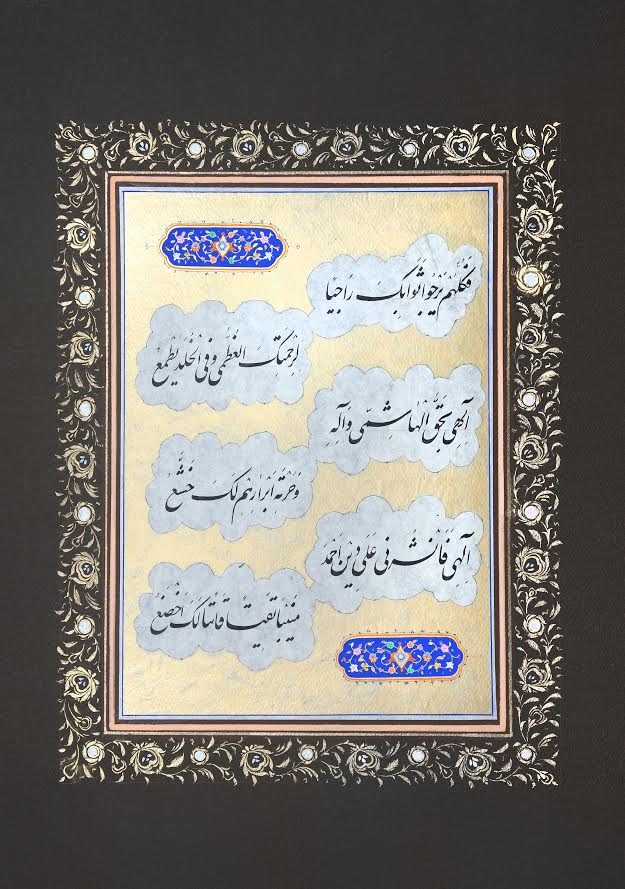 فَكُلُّهُمْ يَرْجُو نَوَالَكَ رَاجِيًا
لِرَحْمَتِكَ الْعُظْمَى وَفِي الْخُلْدِ يَطْمَعُ
اِلٰهِی بِحَقِّ الْهَاشِمِیِّ وَآلِهِ
وَحُرْمَةِ اَبْرَارِهُمْ لَكَ خُشَّعٌ
اِلٰهِی فَانْشُرْنِی عَلَی دِینِ اَحْمَدَ
مُنِیبًا تَقِیًّا قَانِتًا لَكَ اَخْضَعُ